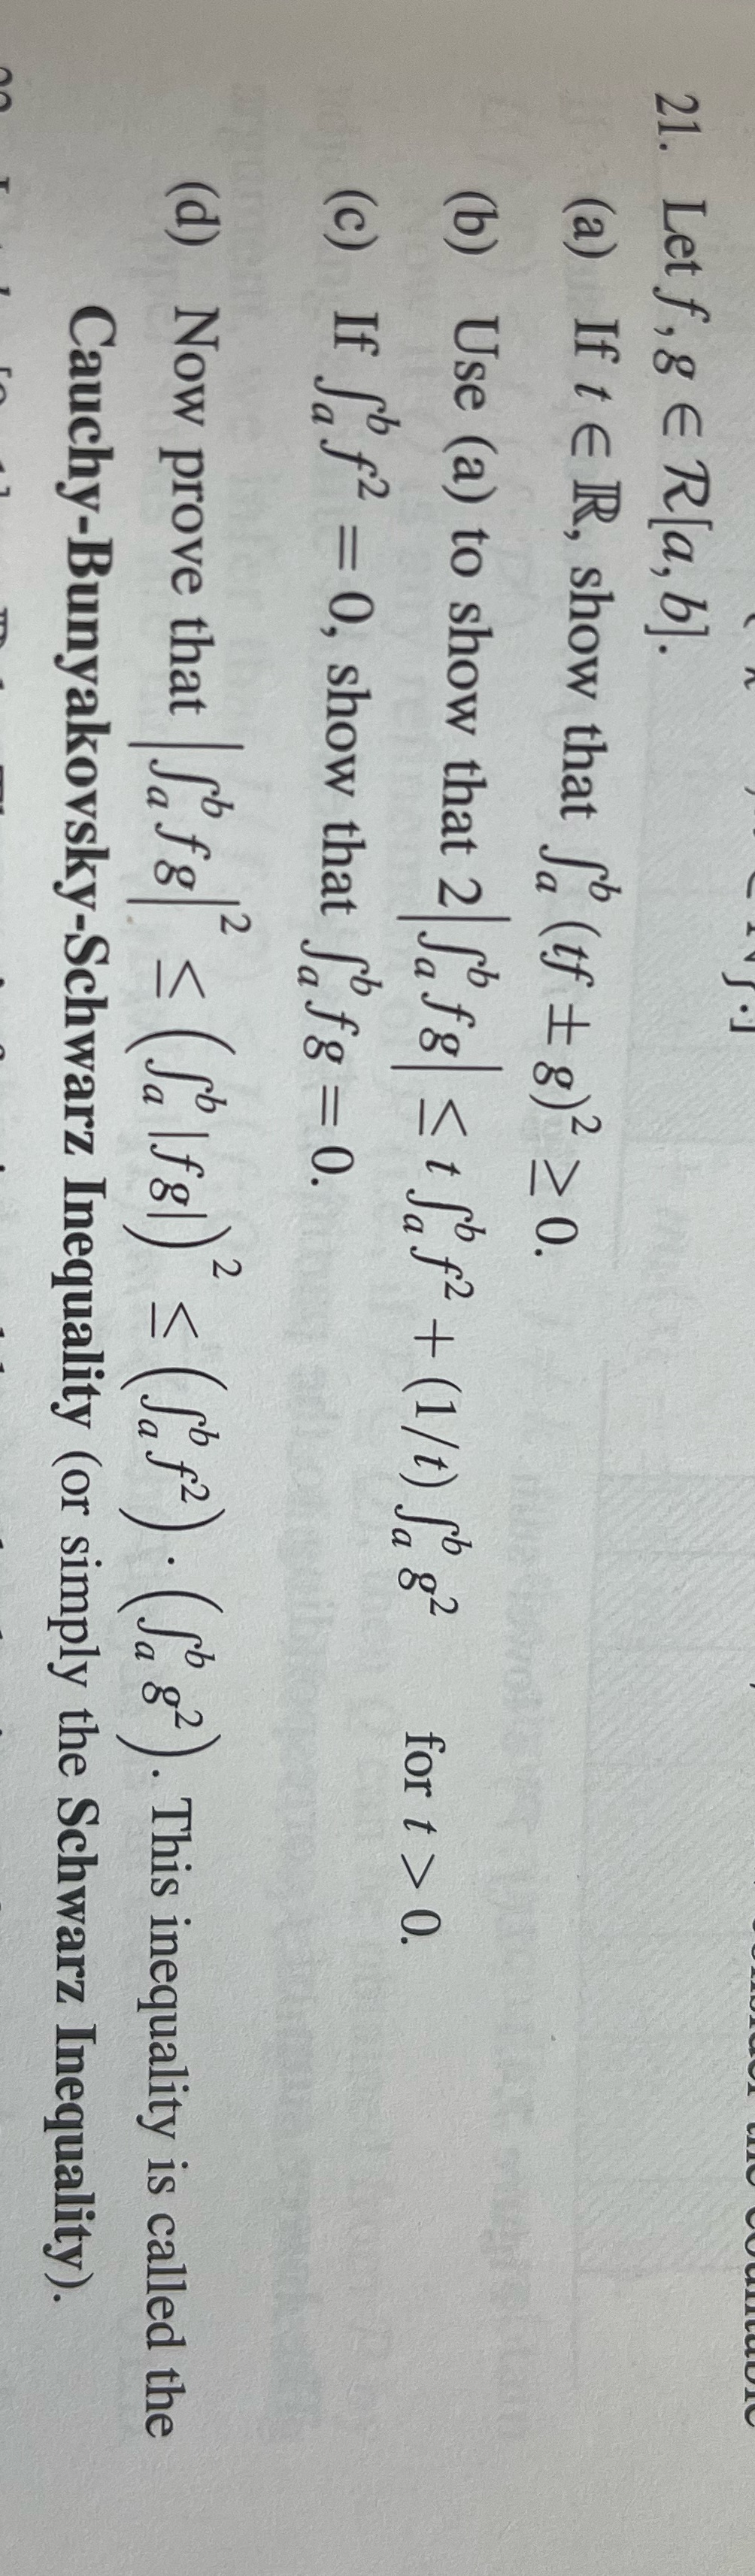 21. Let f, g ∈ ℛ[a, b].
(a) If t ∈ ℝ, show that ∫ₐᵇ (tf ± g)² ≥ 0.
(b) Use (a) to show that 2|∫ₐᵇ fg| ≤ t ∫ₐᵇ f² + (1/t) ∫ₐᵇ g² for t > 0.
(c) If ∫ₐᵇ f² = 0, show that ∫ₐᵇ fg = 0.
(d) Now prove that |∫ₐᵇ fg|² ≤ (∫ₐᵇ |fg|)² ≤ (∫ₐᵇ f²) · (∫ₐᵇ g²). This inequality is called the
Cauchy-Bunyakovsky-Schwarz Inequality (or simply the Schwarz Inequality).